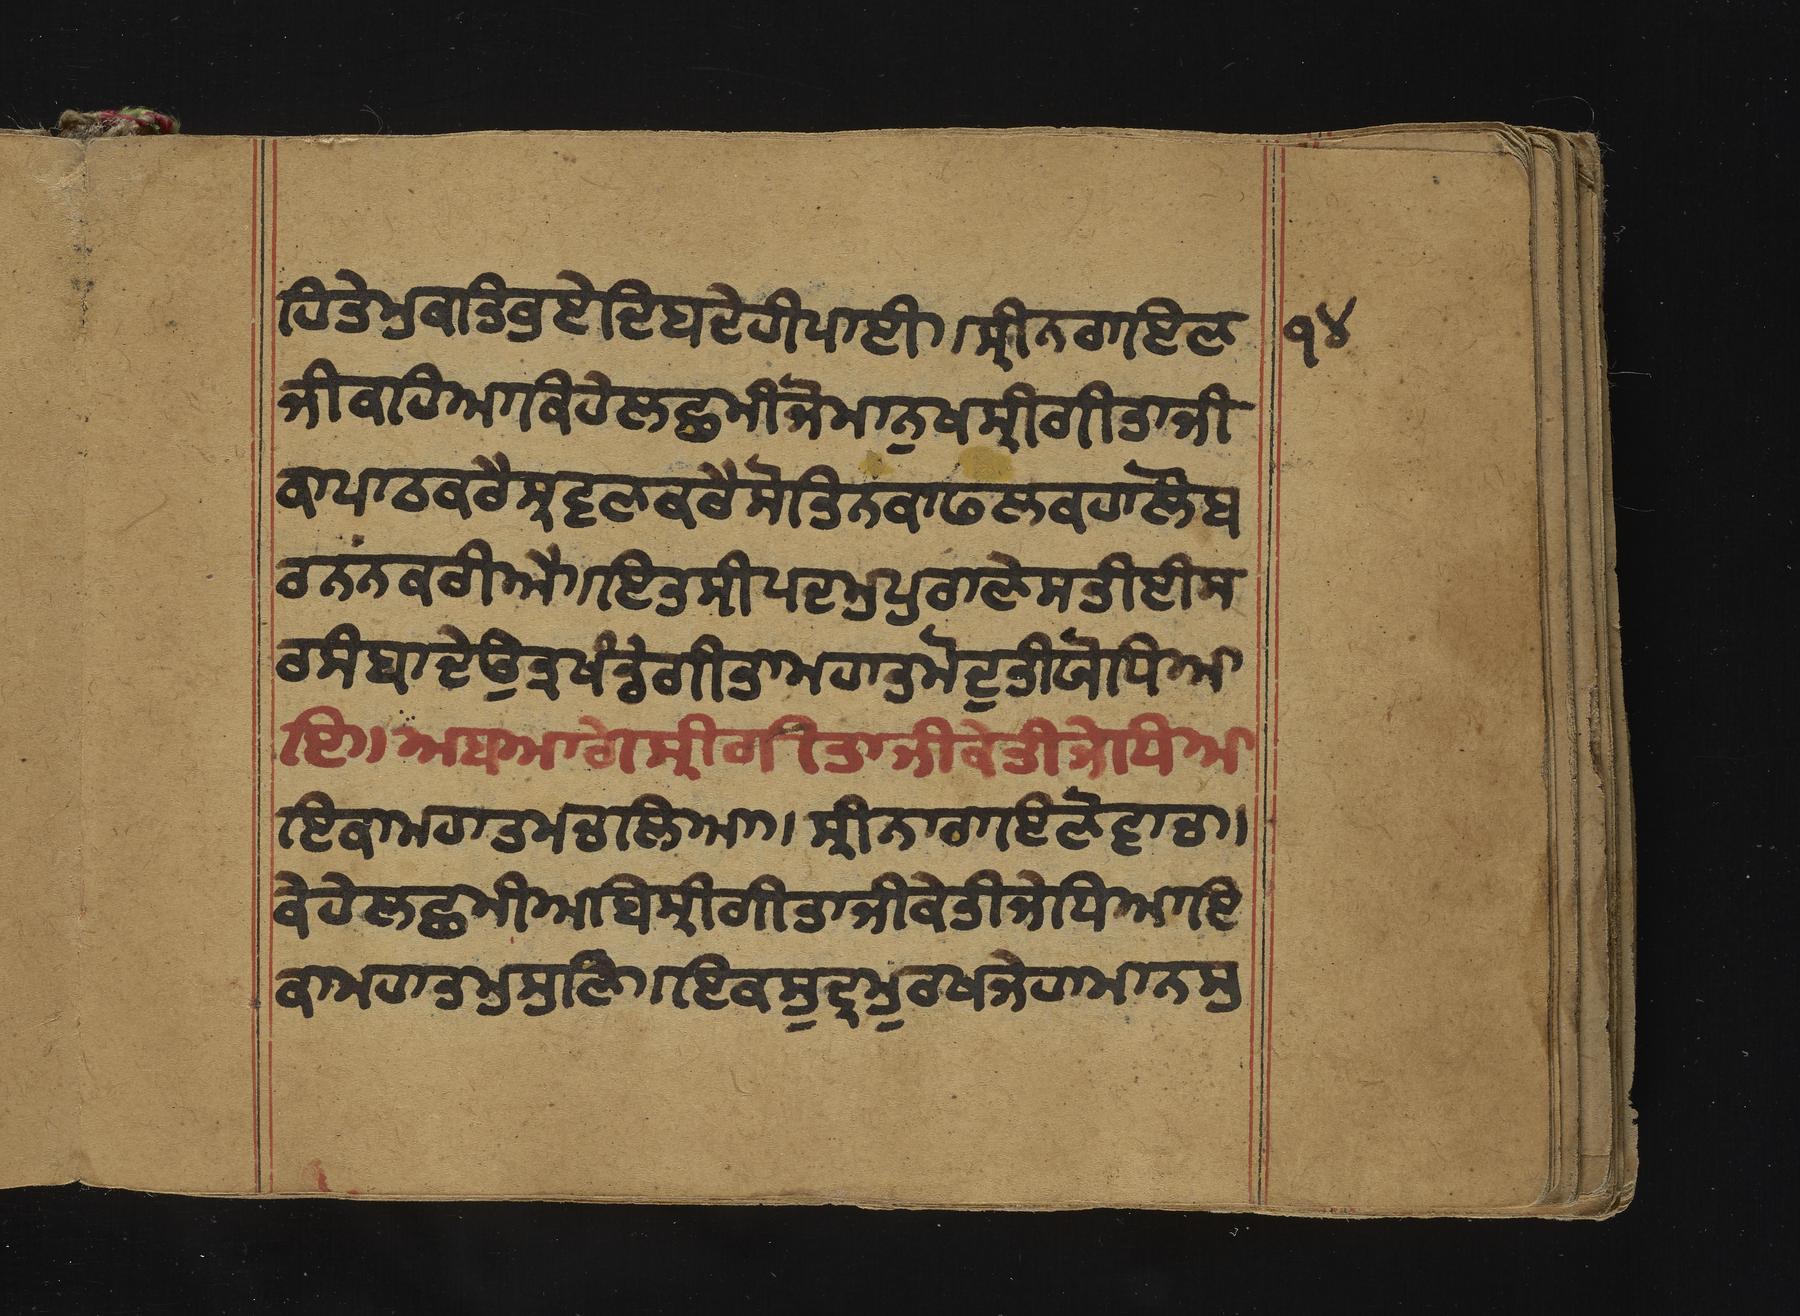 ਹਿਤੇਮੁਕਤਿਭੁਏਦਿਬਦੇਹੀਪਾਈ।।ਸ੍ਰੀਨਰਾਇਣ ੧੪
ਜੀਕਹਿਆਕਿਹੇਲਛਮੀਜੋਮਾਨੁਖਸ੍ਰੀਗੀਤਾਜੀ
ਕਾਪਾਠਕਰੈਸ੍ਰਵਣਕਰੈਸੋਤਿਨਕਾਫਲਕਹਾਲੌਬ
ਰਨਨਕਰੀਐ।।ਇਤਸ੍ਰੀਪਦਮੁਪੁਰਾਣੇਸਤੀਈਸ
ਰਸੰਬਾਦੇਉਤ੍ਰਖੰਡੇਗੀਤਾਮਹਾਤਮੋਦੁਤੀਯੋਧਿਆ
ਇ।।ਅਬਆਗੇਸ੍ਰੀਗੀਤਾਜੀਕੇਤੀਜੇਧਿਅ
ਇਕਾਮਹਾਤਮਚਲਿਆ।।ਸ੍ਰੀਨਾਰਾਇਣੋਵਾਚ।
ਕੇਹੇਲਛਮੀਆਬਿਸ੍ਰੀਗੀਤਾਜੀਕੇਤੀਜੇਧਿਆਇ
ਕਾਮਹਾਤਮੁਸੁਣਿ।।ਇਕਸੁਦ੍ਰਮੁਰਖਜੇਹਾਮਾਨਸੁ